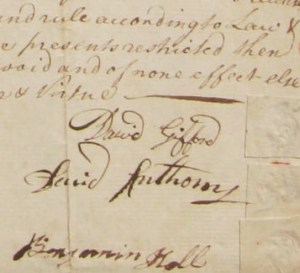 and rule according to Law &
presents restricted then
void and of none effect else
& Virtue
David Gifford
David Anthony
Benjamin Hall